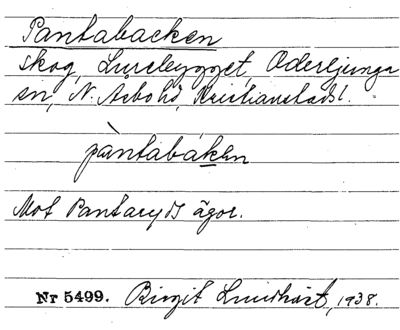 Pantabacken
skog, Lurebygget, Oderljunga
sn, N. Åsbo hd, Kristianstads l.
pàntabáken
Mot Pantaryds ägor.
Nr 5499. Birgit Lindkvist, 1938.